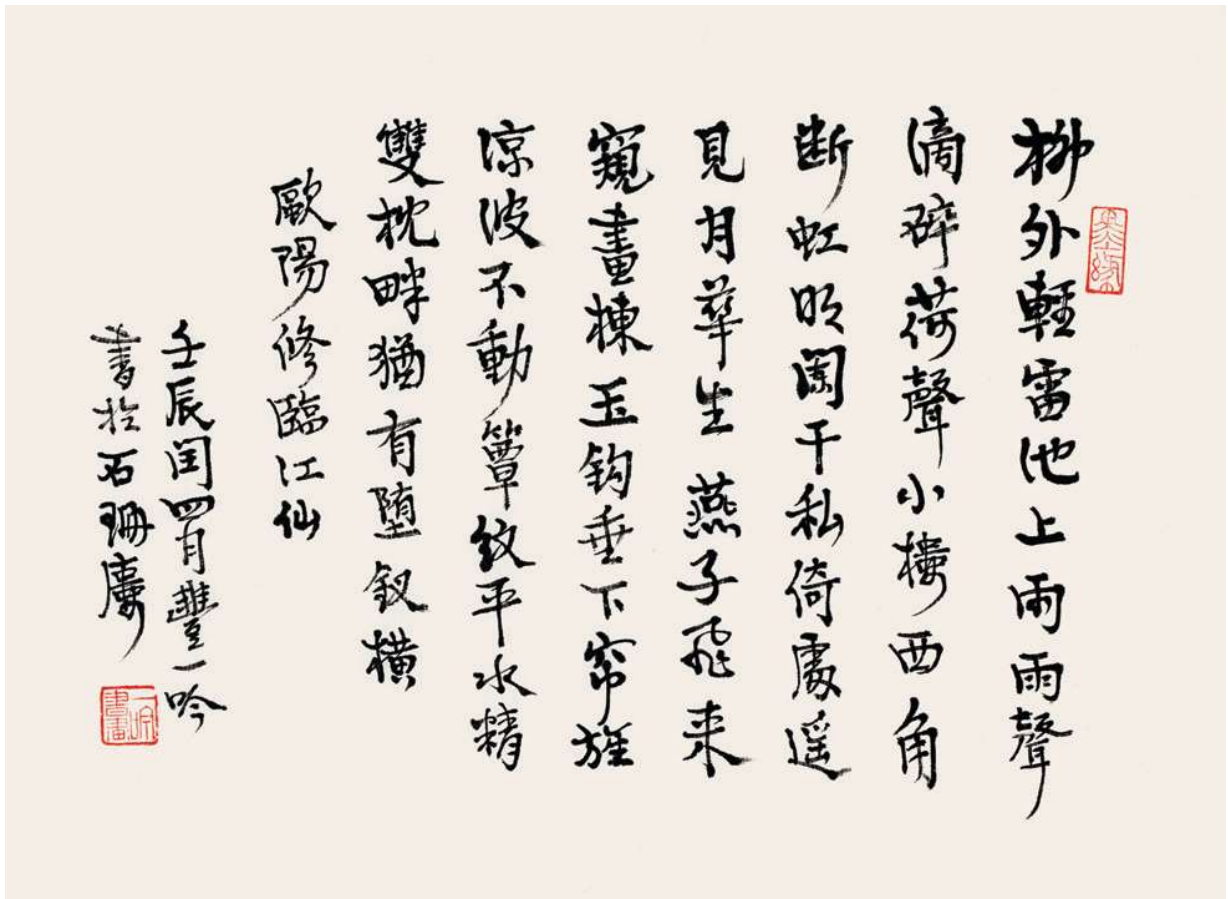 墨緣
柳外輕雷池上雨雨聲
滴碎荷聲小樓西角
断虹明闌干私倚處遥
見月華生燕子飛来
窺畫棟玉鈎垂下帘旌
涼波不動簟紋平水精
雙枕畔猶有堕釵橫
歐陽修臨江仙
壬辰閏四月豐一吟
書於石珊廔
一吟書畫